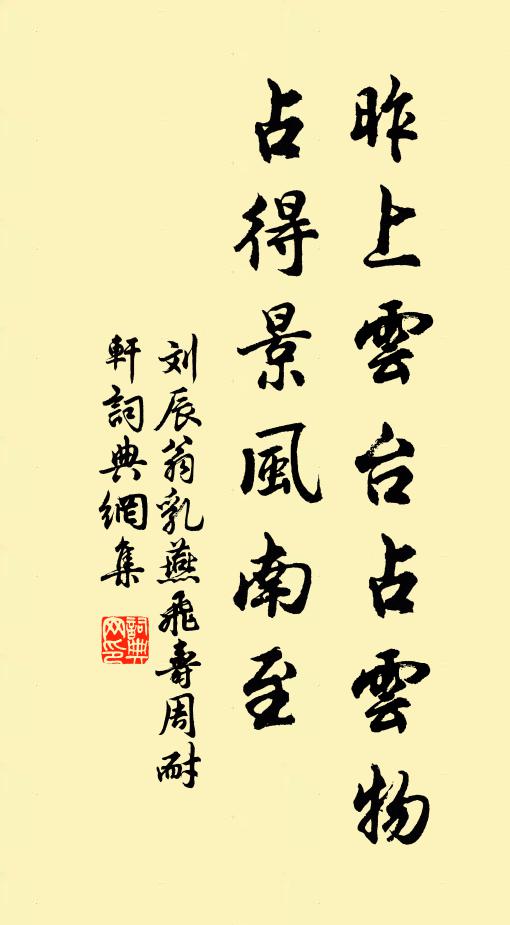 昨上雲台占雲物
占得景風南至
刘辰翁乳燕飛壽周耐
軒詞典網集
詞典
网印